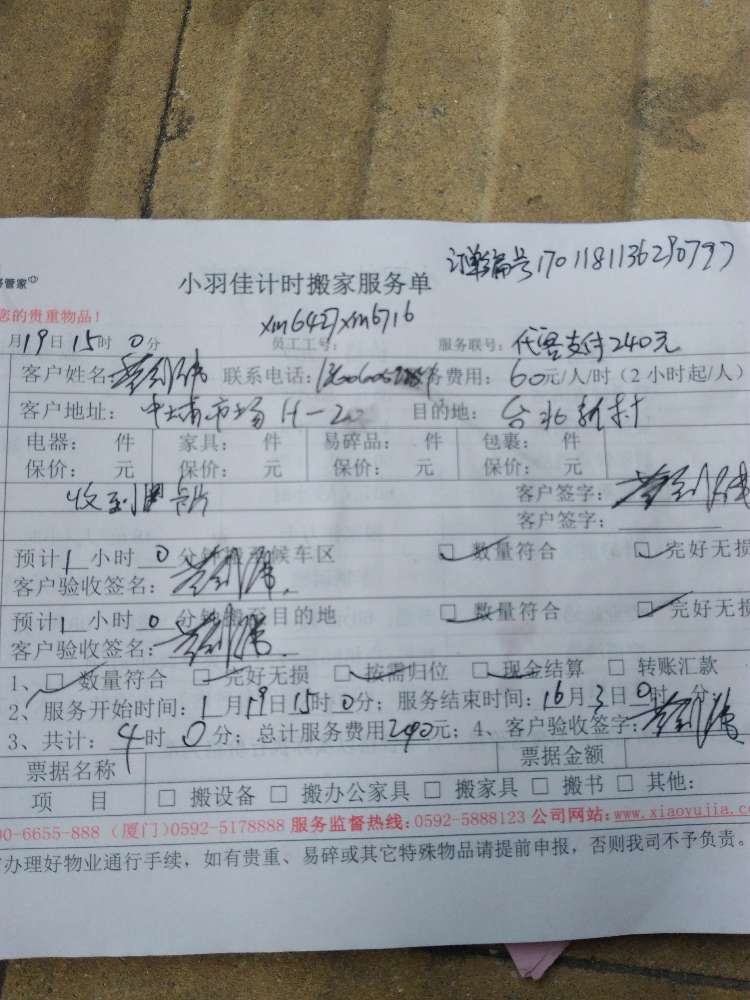 管家
订单编号1701181136290797
小羽佳计时搬家服务单
您的贵重物品！
xm6427xm6716
月19日15时0分 员工工号： 服务联号：代客支付240元
客户姓名： 联系电话： 务费用：60元/人/时（2小时起/人）
客户地址：中埔市场H-20 目的地：台北新村
电器： 件 家具： 件 易碎品： 件 包裹： 件
保价： 元 保价： 元 保价： 元 保价： 元
收到 卡片 客户签字：
客户签字：
预计1小时0分钟搬至候车区 □数量符合 □完好无损
客户验收签名：
预计1小时0分钟搬至目的地 □数量符合 □完好无损
客户验收签名：
1、□数量符合 □完好无损 □按需归位 □现金结算 □转账汇款
2、服务开始时间：1月19日15时0分；服务结束时间：16月3日0时 分；
3、共计：4时0分；总计服务费用240元；4、客户验收签字：
票据名称 票据金额
项 目 □搬设备 □搬办公家具 □搬家具 □搬书 □其他：
00-6655-888 (厦门)0592-5178888 服务监督热线：0592-5888123 公司网站：www.xiaoyujia.co
办理好物业通行手续，如有贵重、易碎或其它特殊物品请提前申报，否则我司不予负责。